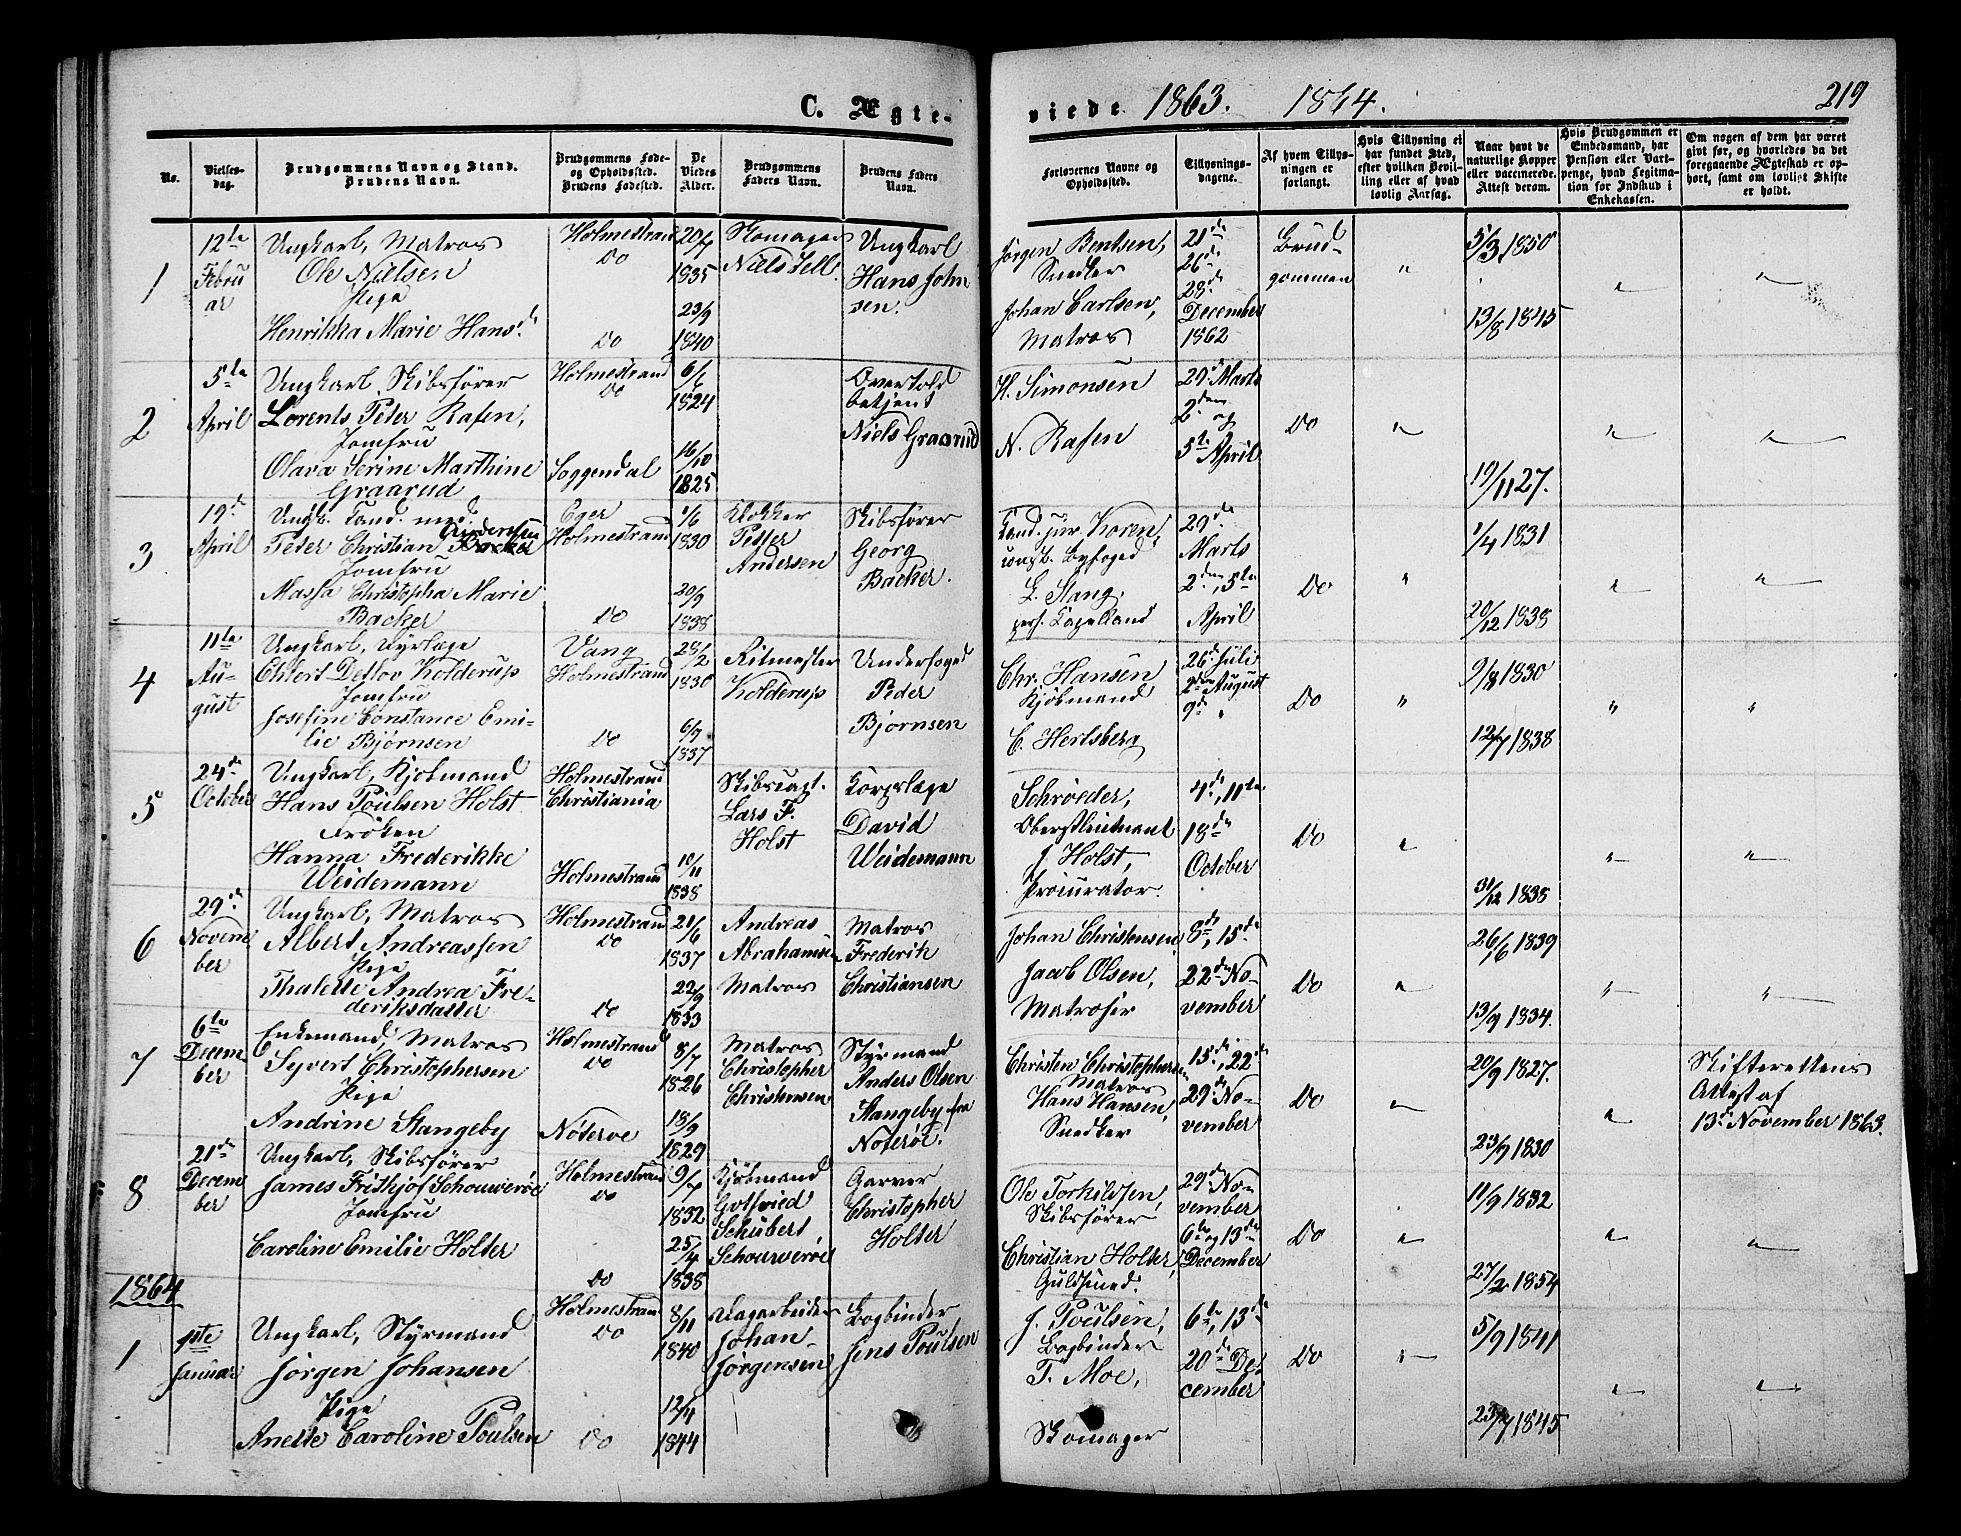 C. Ægte-
viede 1863. 1864. 219
No.
Vielses-
dag.
Brudgommens Navn og Stand.
Brudens Navn.
Brudgommens Føde-
og Opholdssted.
Brudens Fødested.
De
Viedes
Alder.
Brudgommens
Faders Navn.
Brudens Faders
Navn.
Forlovernes Navne og
Opholdssted.
Tillysnings-
dagene.
Af hvem Tillys-
ningen er
forlangt.
Hvis Tillysning ei
har fundet Sted,
efter hvilken Bevil-
ling eller af hvad
lovlig Aarsag.
Naar havt de
naturlige Kopper
eller vaccinerede.
Attest derom.
Hvis Brudgommen er
Embedsmand, har
Pension eller Vart-
penge, hvad Legitma-
tion for Indskud i
Enkekassen.
Om nogen af dem har været
gift før, og hvorledes da det
foregaaende Ægteskab er op-
hørt, samt om lovligt Skifte
er holdt.
1
12te
Febru
ar
Ungkarl, Matros
Ole Nielsen
Pige
Henrikka Marie Hansd.
Holmestrand
Do
Do
20/7
1835
23/9
1840
Skomager
Niels Fell
Ungkarl
Hans John
sen.
Jørgen Bentsen,
Snedker
Johan Carlsen,
Matros
21de
26de
28de
December
1862
Brud-
gommen
"
5/3 1850
13/8 1845
"
"
2
5te
April
Ungkarl, Skibsfører
Lorents Peter Rasen,
Jomfru
Olava Serine Marthine
Graarud
Holmestrand
Do
Soggendal
6/6
1824
16/10
1825
Overtold
betjent
Niels Graarud
H. Simonsen
N. Rasen
29. Marts
2den og
5te April
Do
"
19/11 27.
"
"
3
19de
April
Ungk. Cand. med.
Peter Christian Andersen
Jomfru
Massa Christopha Marie
Backer
Eger
Holmestrand
Do
1/6
1830
20/9
1838
Klokker
Peter
Andersen
Skibsfører
Georg
Backer.
Cand. jur. Koren,
const. Byfoged
L. Stang,
pers. Capelland
29de
Marts
2den, 5te
April
Do
"
1/4 1831
20/12 1838
"
"
4
11te
Au-
gust
Ungkarl, Dyrlæge
Ehbert Detlov Kolderup
Jomfru
Josefine Constance Emi-
lie Bjørnsen
Vang
Holmestrand
Do
28/2
1830
6/9
1837
Ritmester
Kolderup
Underfoged
Peder
Bjørnsen
Chr. Hansen
Kjøbmand
C. Hertsberg
26. Juli
2den August
9de "
Do
"
9/8 1830
12/7 1838
"
"
5
24de
October
Ungkarl, Kjøbmand
Hans Poulsen Holst
Frøken
Hanna Frederikke
Weidemann
Holmestrand
Christiania
Holmestrand
10/11
1838
Skibscapt.
Lars F.
Holst
Corpslæge
David
Weidemann
Schrøeder,
Oberstlieutnant
J. Holst,
Procurator.
4de, 11te
18de
October
Do
"
31/12 1838
"
"
6
29de
Novem
ber
Ungkarl, Matros
Albert Andreassen
Pige
Thalette Andrea Fre-
deriksdatter
Holmestrand
Do
Do
21/6
1837
22/9
1833
Andreas
Abrahamsen
Matros
Matros
Frederik
Christiansen
Johan Christensen
Jacob Olsen,
Matroser
8de, 15de
22de No-
vember
Do
"
26/6 1839
13/9 1834.
"
"
7
6te
Decem
ber
Enkemand, Matros
Syvert Christophersen
Pige
Andrine Stangeby
Holmestrand
Do
Nøterøe
8/7
1826
18/9
1829
Matros
Christopher
Christensen
Styrmand
Anders Olsen
Stangeby fra
Nøterøe.
Christen Christophersen
Matros
Hans Hansen,
Snedker
15de, 22de
29de No-
vember
Do
"
20/9 1827.
23/9 1830
"
Skifterettens
Attest af
13de November 1863.
8
21de
Decem
ber
Ungkarl, Skibsfører
James Frithjof Schouwerøe
Jomfru
Caroline Emilie Holter
Holmestrand
Do
Do
9/7
1832
25/4
1838
Kjøbmand
Gotfried
Schubert
Schourwerøe
Garver
Christopher
Holter
Ole Torkildsen,
Skibsfører
Christian Holter,
Guldsmed.
29de No-
vember
6te og 13de
December
Do
"
11/9 1832
27/2 1854
"
"
1864
1
1ste
Januar
Ungkarl, Styrmand
Jørgen Johansen
Pige
Anette Caroline Poulsen
Holmestrand
Do
Do
8/11
1840
12/4
1844
Dagarbeider
Johan
Jørgensen
Bogbinder
Jens Poulsen
J. Poulsen,
Bogbinder
T. Moe,
Skomager
6te, 13de
20de De-
cember
Do
"
5/9 1841
23/7 1845
"
"